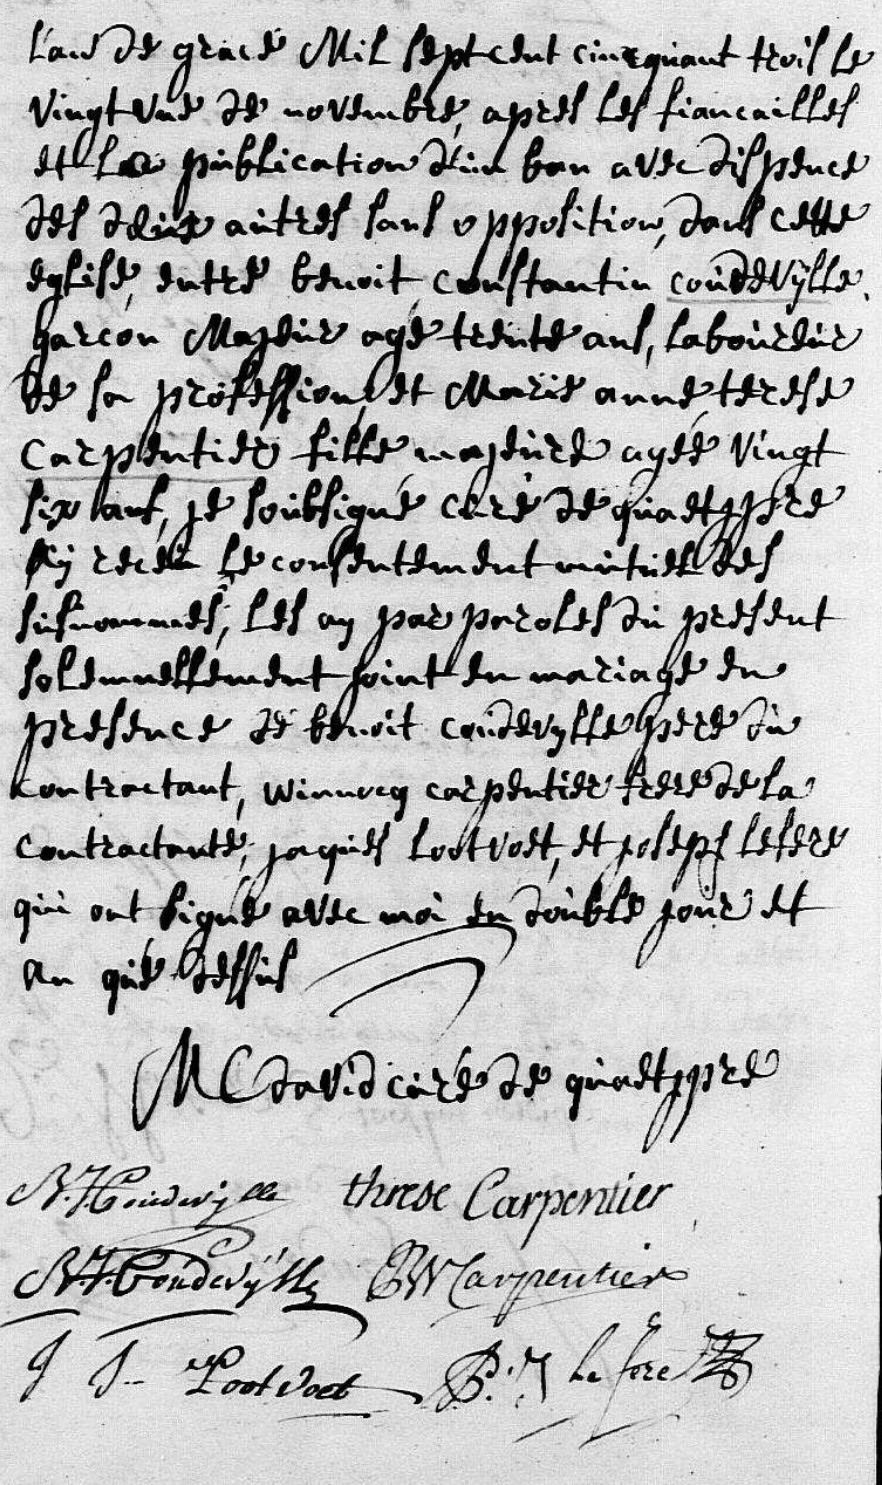 L'an de grace Mil sept cent cincquant trois le
vingt une de novembre, apres les fiancailles
et la publication d'un ban avec dispence
des deux autres sans opposition, dans cette
eglise, entre benoit constantin coudevÿlle
garcon Majeur agé trente ans, laboureur
de sa profession, et Marie anne terese
Carpentier fille majeure agée vingt
six ans, je soubsigné curé de quaetÿpre
aÿ receu le consentement mutuel des
susnommés, les aÿ par paroles du present
solemnellement joint en mariage en
presence de benoit coudevylle pere du
contractant, winnocq carpentier frere de la
contractante, jaques lootvoet, et joseph lefere
qui ont signé avec moi en double jour et
an que dessus
MC david curé de quaetÿpre
Coudevÿlle threse Carpentier
Coudevÿlle W Carpentier
J Lootvoet Le fere